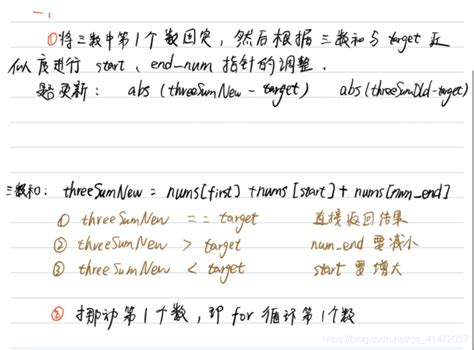 一、
①将三数中第1个数固定，然后根据三数和与target近
似度进行 start、end_num 指针的调整.
更新： abs(threeSumNew - target) abs(threeSumOld-target)
三数和： threeSumNew = nums[first] + nums[start] + nums[num_end]
① threeSumNew == target 直接返回结果
② threeSumNew > target num_end 要减小
③ threeSumNew < target start 要增大
② 挪动第1个数，即for循环第1个数